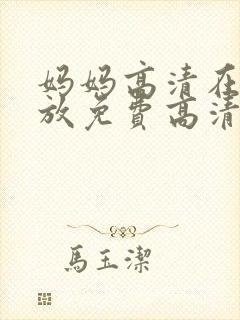 妈妈高清在
放免费高清
馬玉潔